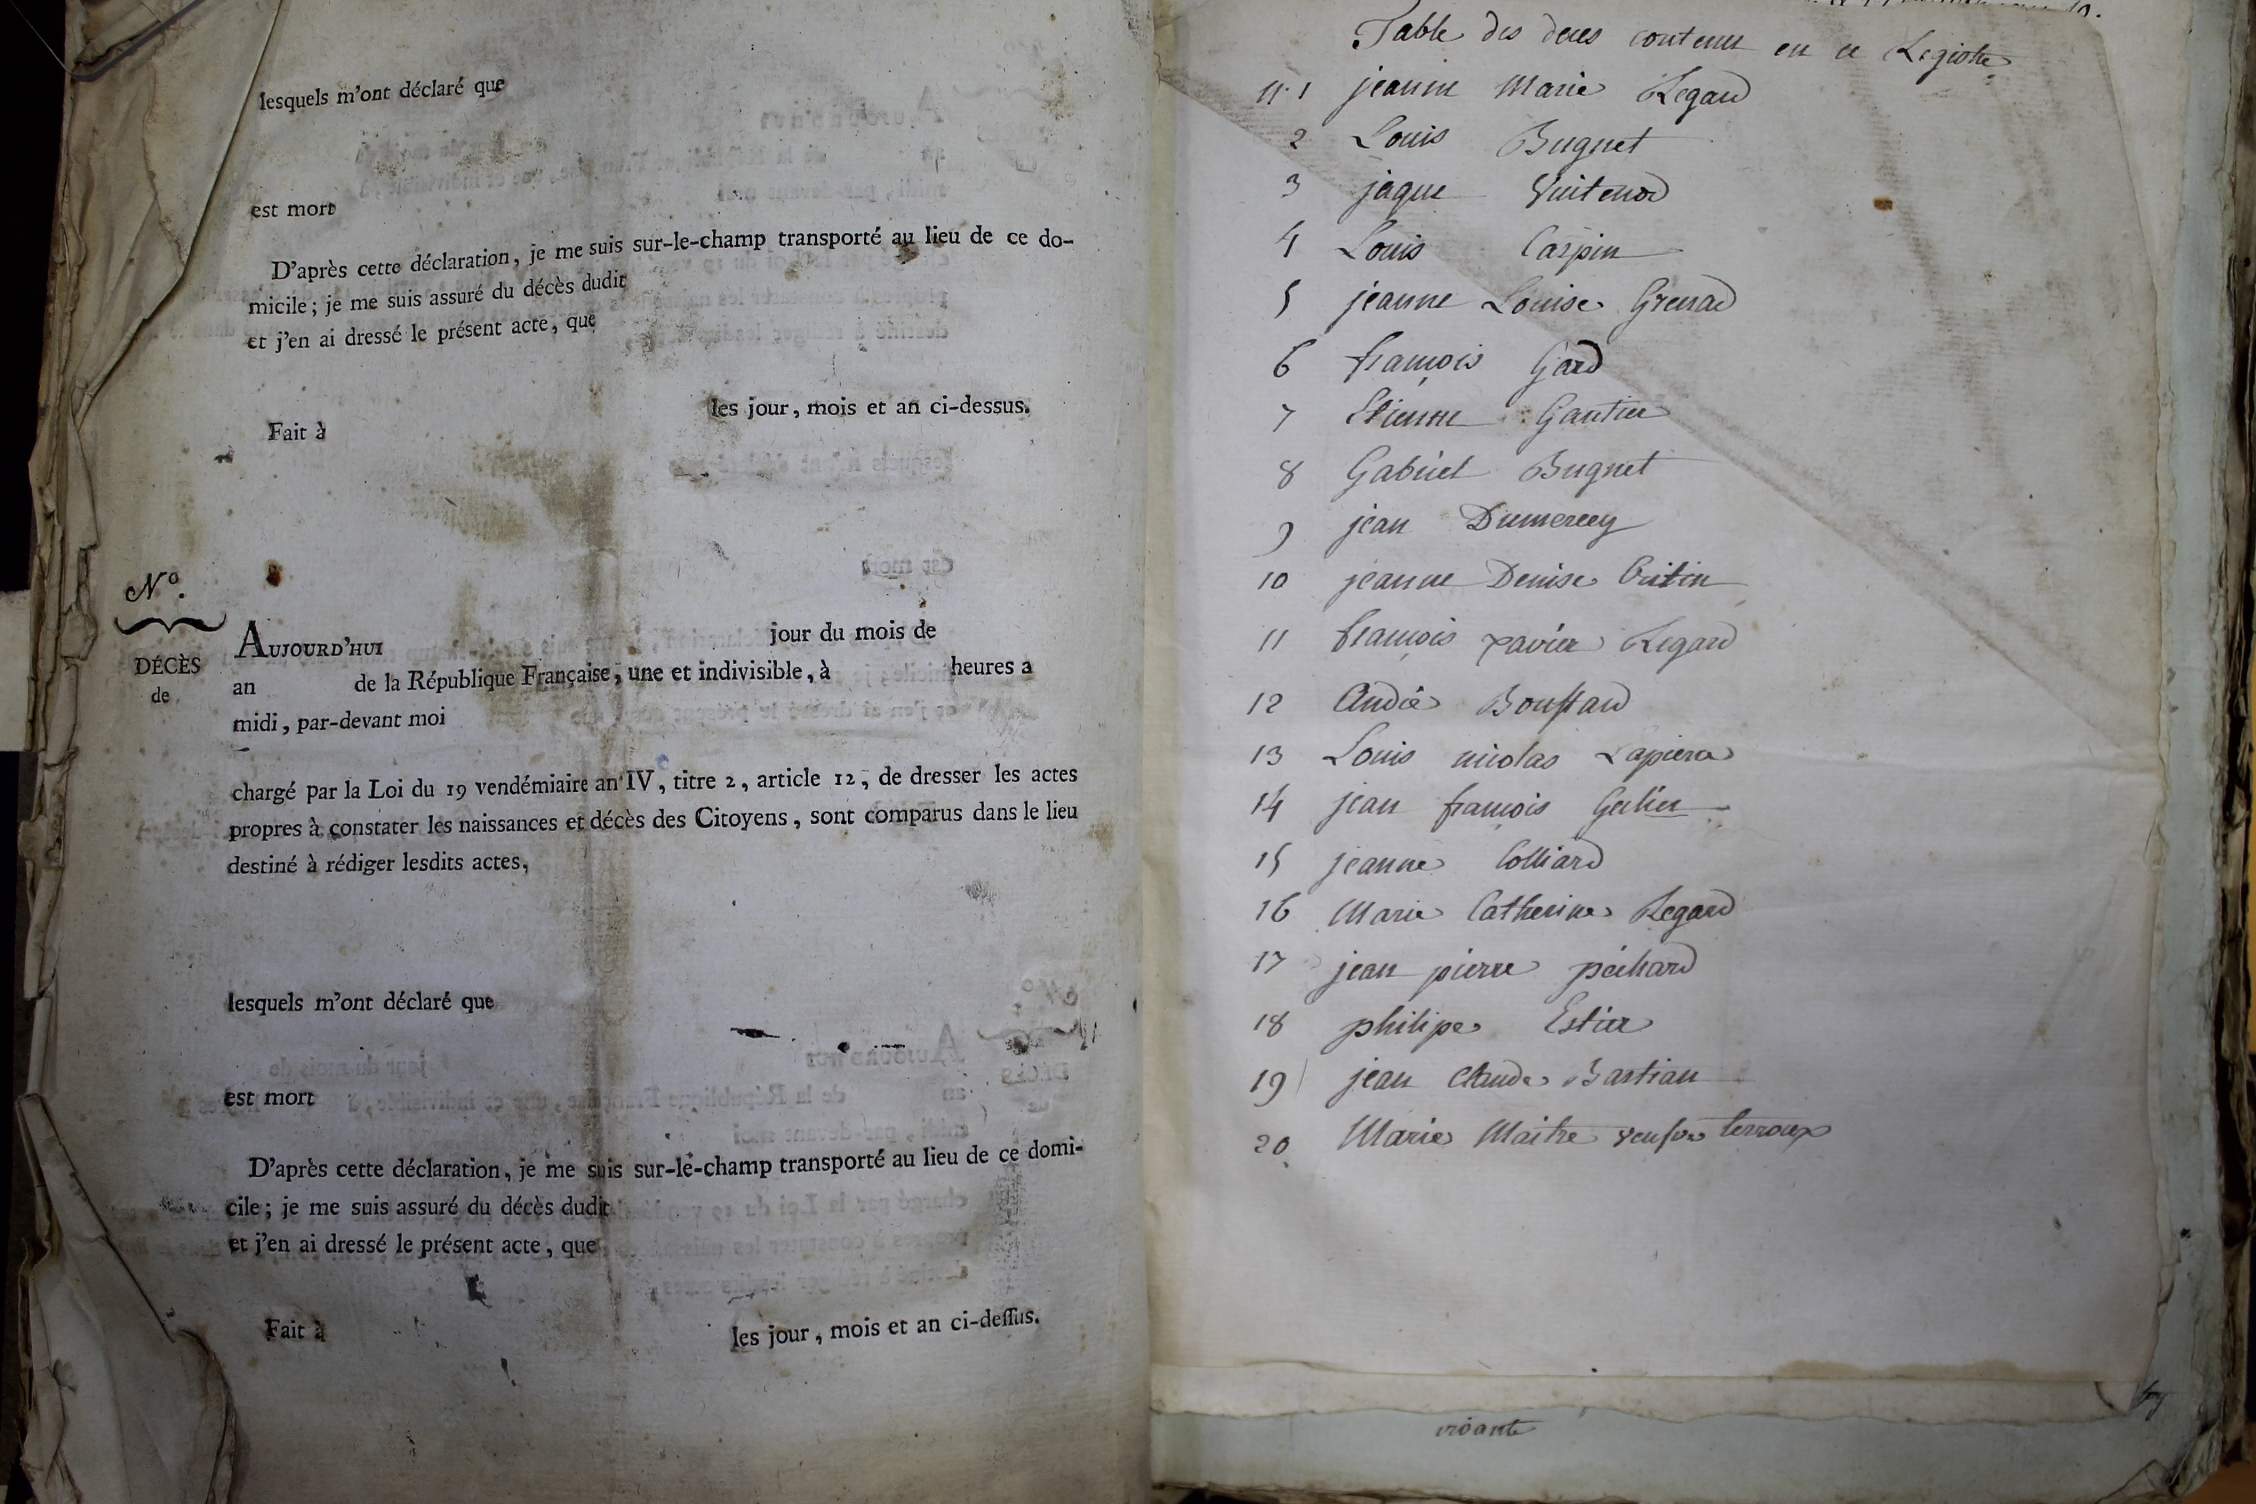 lesquels m'ont déclaré que
est mort
D'après cette déclaration, je me suis sur-le-champ transporté au lieu de ce do-
micile ; je me suis assuré du décès dudit
et j'en ai dressé le présent acte, que
les jour, mois et an ci-dessus.
Fait à
N°.
DÉCÈS
de
AUJOURD'HUI jour du mois de
an de la République Française, une et indivisible, à heures a
midi, par-devant moi
chargé par la Loi du 19 vendémiaire an IV, titre 2, article 12, de dresser les actes
propres à constater les naissances et décès des Citoyens, sont comparus dans le lieu
destiné à rédiger lesdits actes,
lesquels m'ont déclaré que
est mort
D'après cette déclaration, je me suis sur-le-champ transporté au lieu de ce domi-
cile ; je me suis assuré du décès dudit
et j'en ai dressé le présent acte, que
Fait à les jour, mois et an ci-deſſus.
Table des deces contenu en ce Registre
n. 1 jeanne Marie Regard
2 Louis Bugnet
3 jaque Vuitenod
4 Louis Carpin
5 jeanne Louise Grenad
6 françois Gard
7 Etienne Gautier
8 Gabriel Bugnet
9 jean Dumercey
10 jeanne Denise
11 françois xavier Regard
12 André Bouſsard
13 Louis nicolas Lapierre
14 jean françois
15 jeanne Colliard
16 Marie Catherine Regard
17 jean pierre péchard
18 philipe
19 jean Claude Bastian
20 Marie Maitre veufve terroux